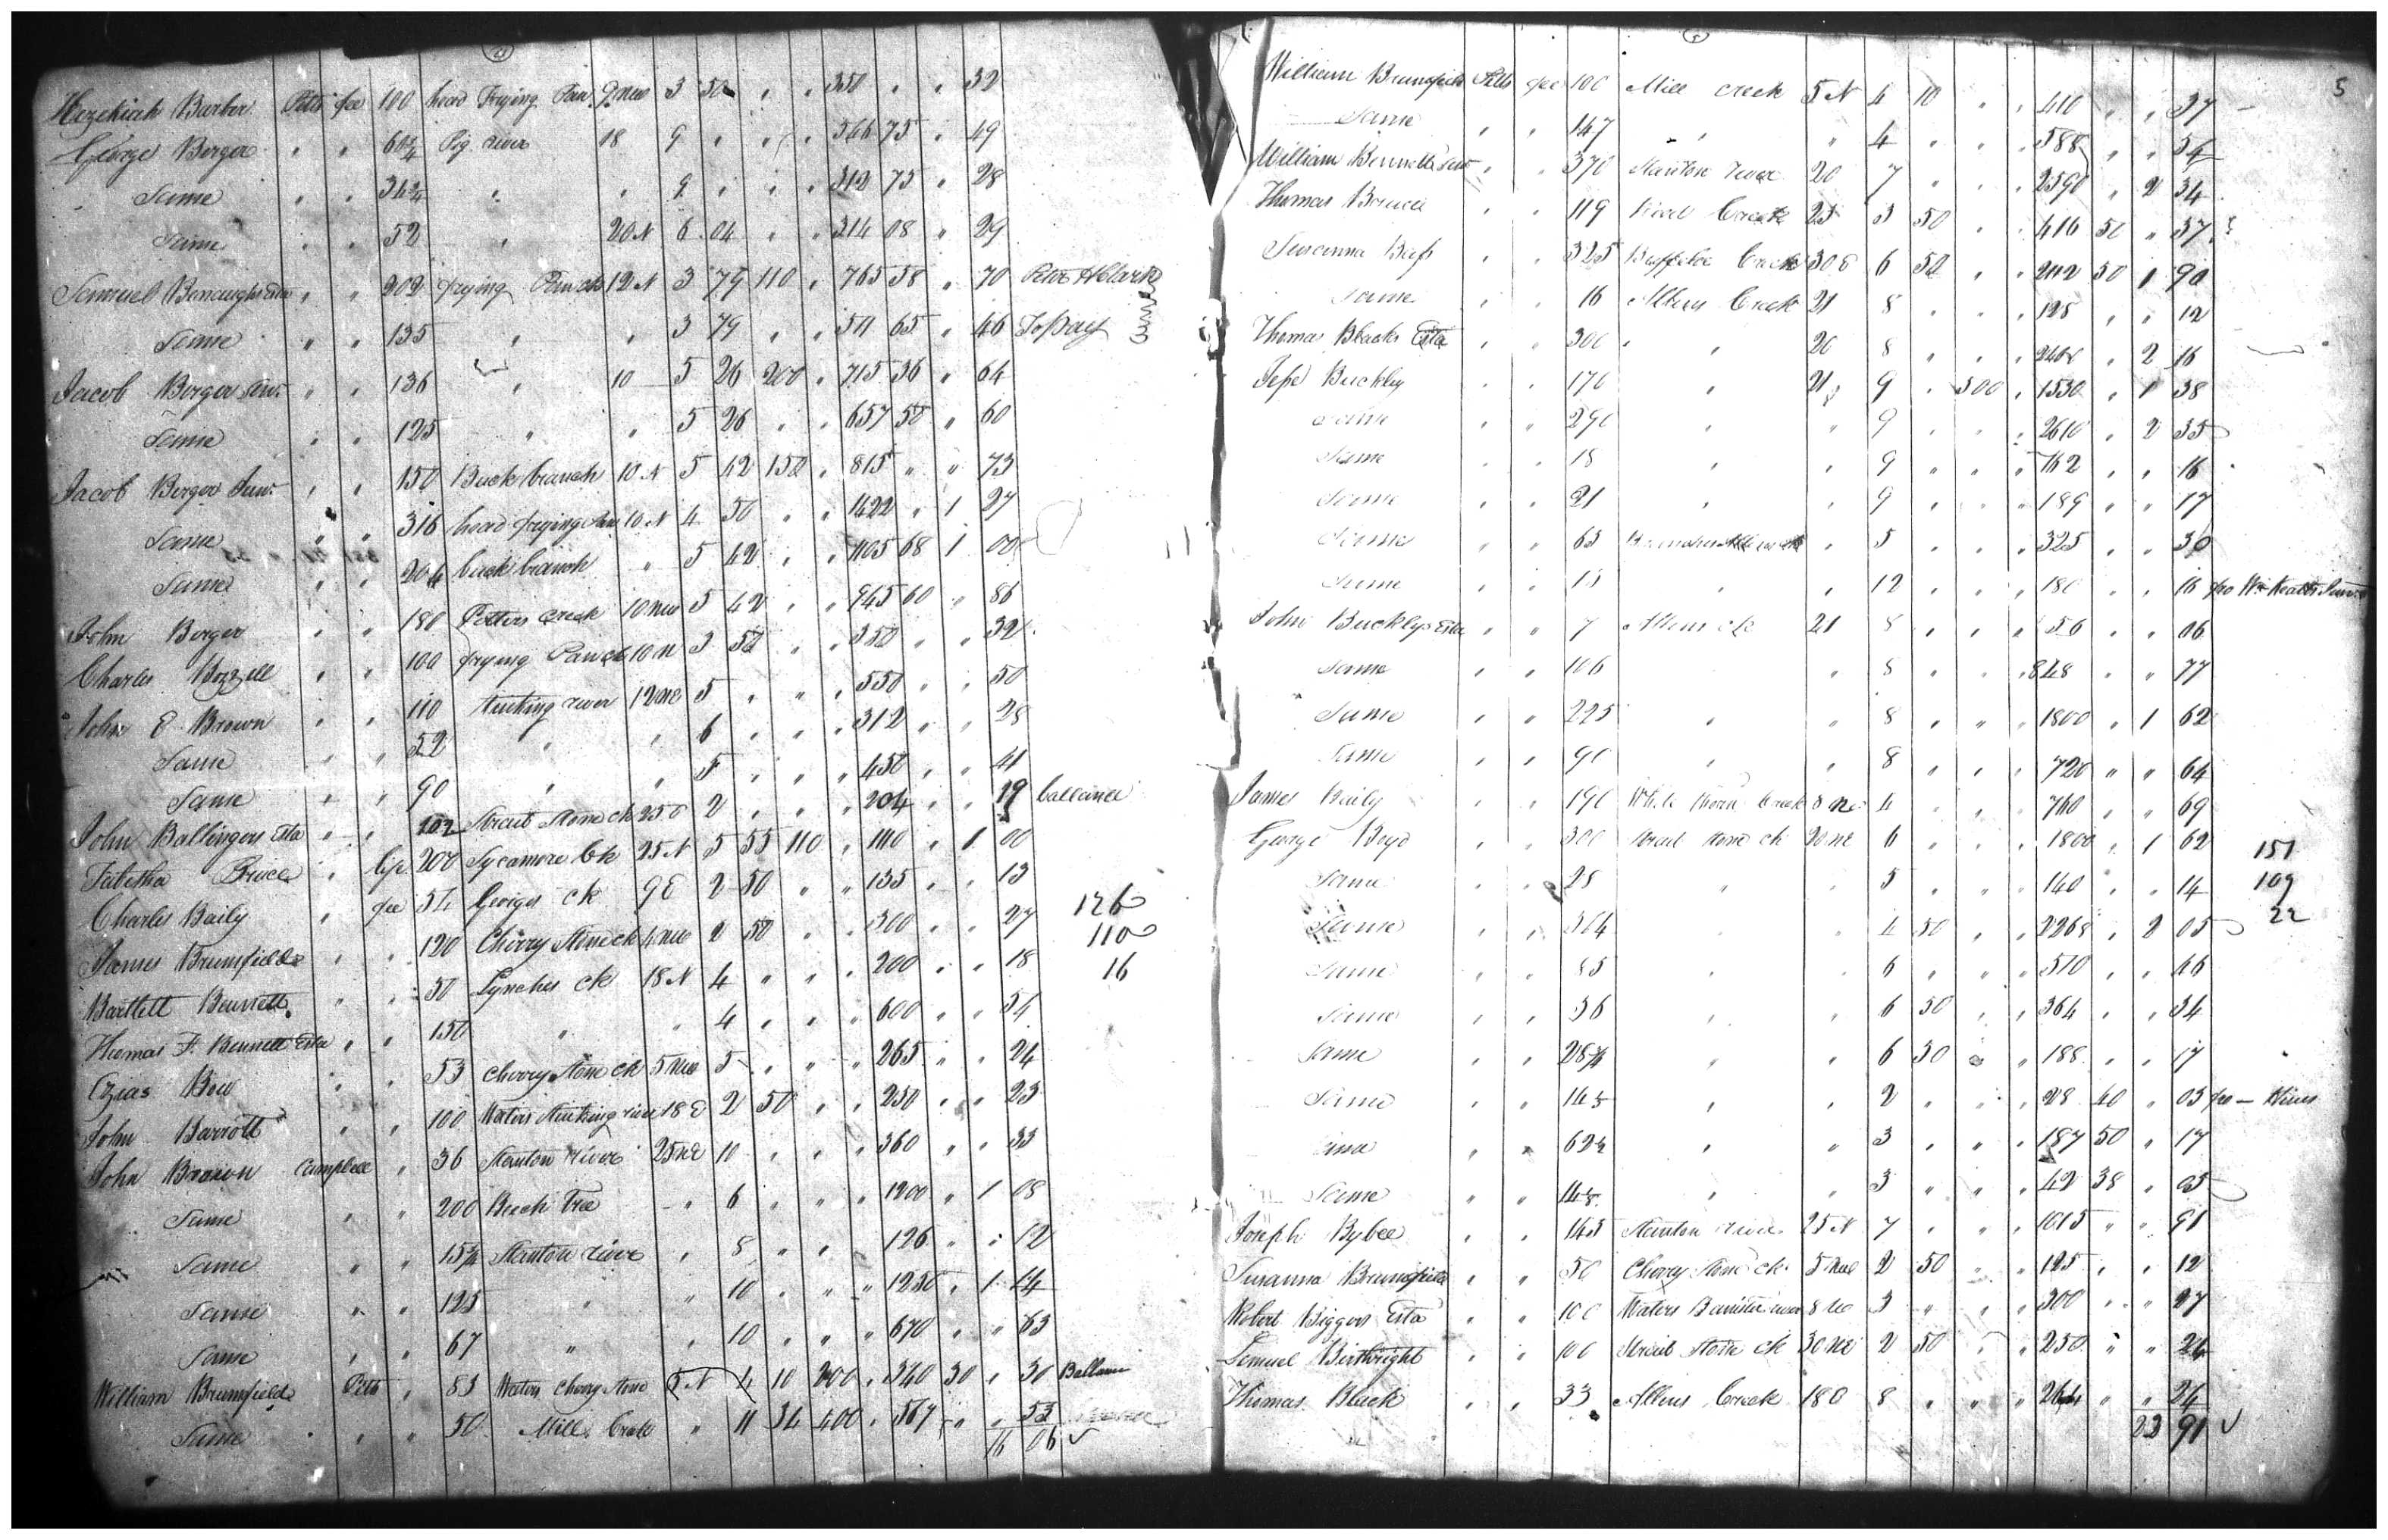 Hezekiah Barber Pitts fee 100 head Frying Pan 9 NW 3 50 " " 350 " " 32
George Berger " " 60¾ Pig river 18 9 " " " 546 75 " 49
Same " " 34¾ " " 9 " " " 312 75 " 28
Same " " 52 " 20 N 6 04 " " 314 08 " 29
Samuel Esta " " 202 frying Pan ck 12 N 3 79 110 " 765 58 " 70
Same " " 135 " " 3 79 " " 511 65 " 46
Jacob Berger Senr. " " 136 " 10 5 26 200 " 715 36 " 64
Same " " 125 " " 5 26 " " 657 50 " 60
Jacob Berger Junr. " " 150 Buck branch 10 N 5 42 150 " 815 " " 73
Same " " 316 head frying Pan 10 N 4 50 " " 1422 " 1 27
Same " " 204 buck branch " 5 42 " " 1105 68 1 00
John Berger " " 180 Potters creek 10 NW 5 42 " " 945 60 " 86
Charles Bozzell " " 100 frying Pan ck 10 N 3 50 " " 350 " " 32
John E Brown " " 110 Stinking river 12 NE 5 " " " 550 " " 50
Same 52 " " 6 " " " 312 " " 28
Same " " 90 " " 5 " " " 450 " " 41
John Ballingers Esta " " 102 Strait Stone ck 25 0 2 " " " 204 " " 19
Tabitha Bruce " life 200 Sycamore Ck 25 N 5 55 110 " 1110 " 1 00
Charles Baily " fee 54 Georges ck 9 E 2 50 " " 135 " " 13
James Brumfield " " 120 Cherry Stone ck 4 NW 2 50 " " 300 " " 27
Bartlett Bennett " " 50 Lynches ck 18 N 4 " " " 200 " " 18
Thomas F. Bennett Esta " " 150 " " 4 " " " 600 " " 54
Ozias Bow " " 53 Cherry Stone ck 5 NW 5 " " " 265 " " 24
John Barrott " " 100 Waters Stinking river 18 E 2 50 " " 250 " " 23
John Brown Campbell " 36 Stanton river 25 NE 10 " " " 360 " " 33
Same " " 200 Buck Tree " 6 " " " 1200 " 1 08
Same " " 15¾ Stanton river " 8 " " " 126 " " 12
Same " " 125 " " 10 " " " 1250 " 1 14
Same " " 67 " " 10 " " " 670 " " 63
William Brumfield Pitts " 83 Waters cherry Stone 5 N 4 10 200 " 340 30 " 30
Same " " 50 Mill Creek " 11 34 400 " 567 " " 53
16 06
126
110
16
5
William Brumfield Pitts fee 100 Mill creek 5 N 4 10 " " 410 " " 37
Same " " 147 " " 4 " " " 588 " " 54
William Bennett Senr " " 370 Stanton river 20 7 " " " 2590 " 2 34
Thomas Bruce " " 119 Reed Creek 25 3 50 " " 416 50 " 37
Susanna Bass " " 325 Buffaloe Creek 30 E 6 50 " " 2112 50 1 90
Same " " 16 Allens Creek 21 8 " " " 128 " " 12
Thomas Blacks Esta " " 300 " " 20 8 " " " 2400 " 2 16
Jesse Buckley " " 170 " 21 9 " 300 " 1530 " 1 38
Same " " 290 " " 9 " " " 2610 " 2 35
Same " " 18 " " 9 " " " 162 " " 16
Same " " 21 " " 9 " " " 189 " " 17
Same " " 65 " 5 " " " 325 " " 30
Same " " 15 " " 12 " " " 180 " " 16
John Buckleys Esta " " 7 Allens ck 21 8 " " " 56 " " 06
Same " " 106 " " 8 " " " 848 " " 77
Same " " 225 " " 8 " " " 1800 " 1 62
Same " " 90 " " 8 " " " 720 " " 64
James Baily " " 190 White Thorn Creek 8 NE 4 " " " 760 " " 69
George Boyd " " 300 Strait Stone ck 20 NE 6 " " " 1800 " 1 62
Same " " 28 " " 5 " " " 140 " " 14
Same " " 504 " " 4 50 " " 2268 " 2 05
Same " " 85 " " 6 " " " 510 " " 46
Same " " 56 " " 6 50 " " 364 " " 34
Same " " " " 6 50 " " 188 " " 17
Same " " " " 2 " " " 28 40 " 03
Same " " 62½ " " 3 " " " 187 50 " 17
Same " " " " 3 " " " 42 38 " 05
Joseph Bybee " " 145 Stanton river 25 N 7 " " " 1015 " " 91
Susanna Brumfield " " 50 Cherry Stone ck 5 NW 2 50 " " 125 " " 12
Robert Biggers Esta " " 100 Waters Banister river 8 3 " " " 300 " " 27
Lemuel Birthright " " 100 Strait Stone ck 30 NE 2 50 " " 250 " " 24
Thomas Black " " 33 Allens Creek 18 0 8 " " " 264 " " 24
23 91
151
109
22